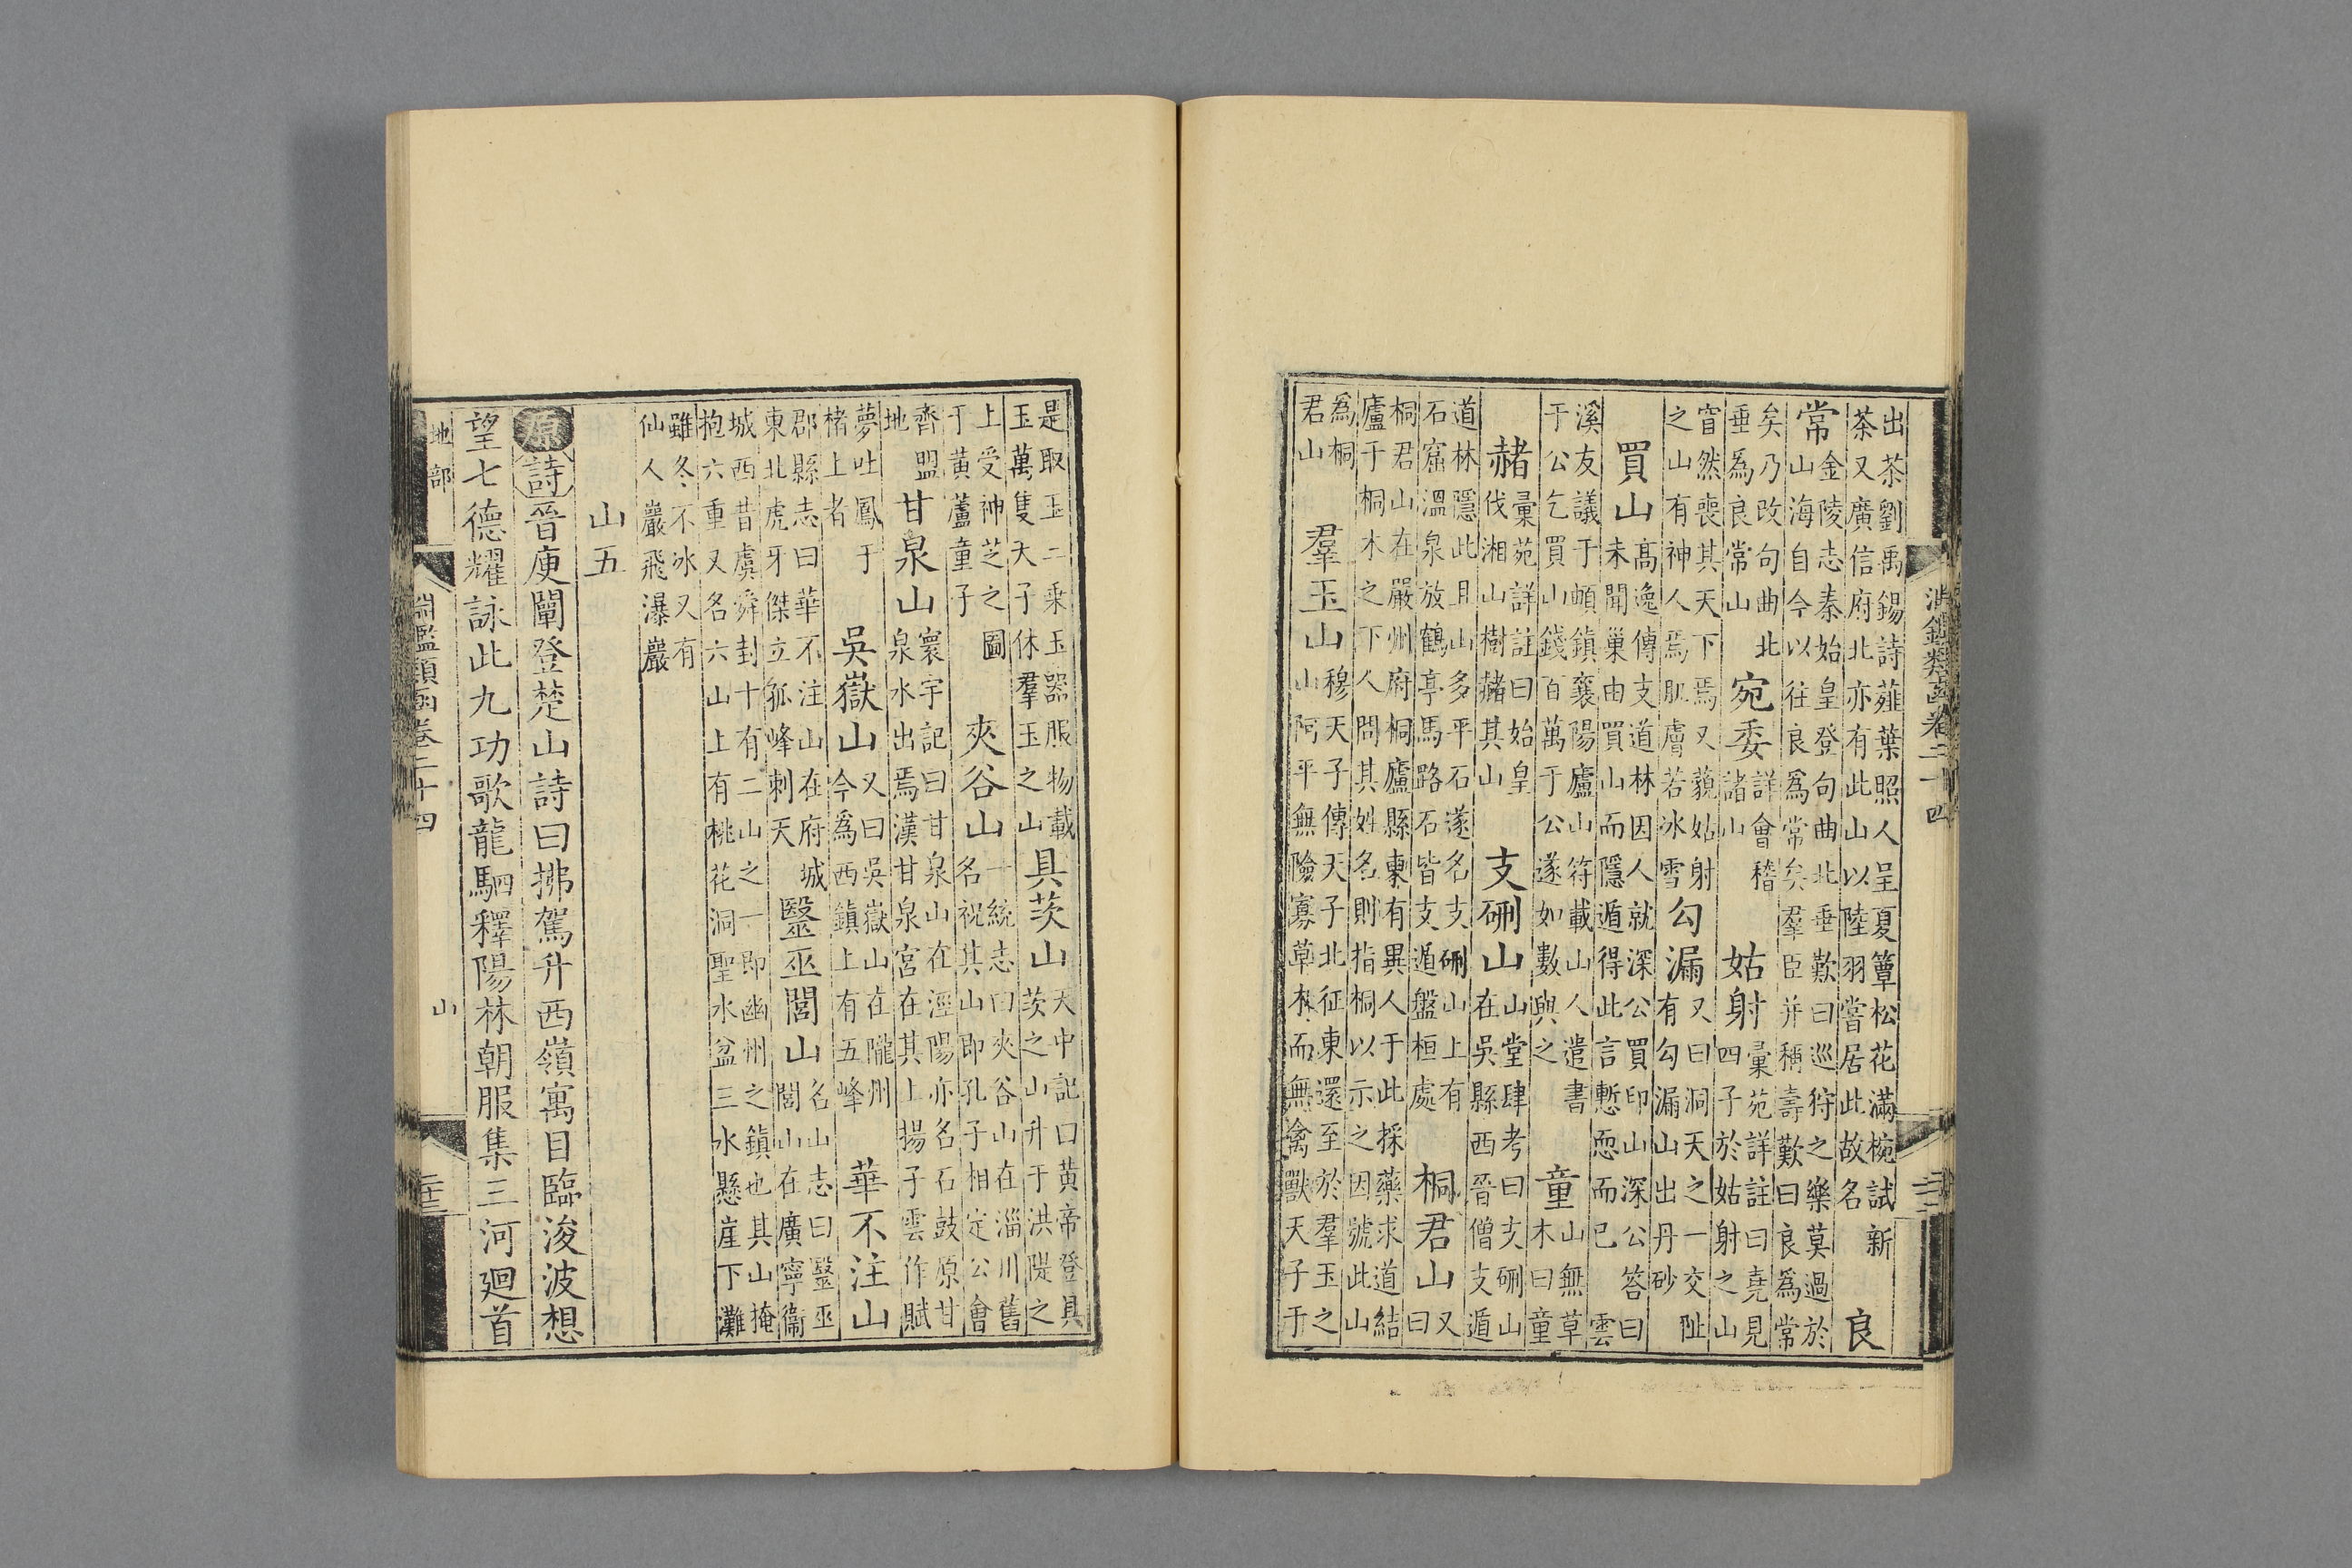 淵鑑類函卷二十四
出茶劉禹錫詩薤葉照人呈夏簟松花滿椀試新
茶又廣信府北亦有此山以陸羽嘗居此故名
良
常
金陵志秦始皇登句曲北垂歎曰巡狩之樂莫過於
山海自今以往良爲常矣羣臣并稱壽歎曰良爲常
矣乃改句曲北
垂爲良常山
宛委
詳會稽
諸山
姑射
彙苑詳註曰堯見
四子於姑射之山
窅然喪其天下焉又藐姑射
之山有神人焉肌膚若冰雪
勾漏
又曰洞天之一交阯
有勾漏山出丹砂
買山
髙逸傳支道林因人就深公買印山深公答曰
未聞巢由買山而隱遁得此言慙恧而已 雲
溪友議于頔鎮襄陽廬山符載山人遣書
于公乞買山錢百萬于公遂如數與之
童
山無草
木曰童
赭
彙苑詳註曰始皇
伐湘山樹赭其山
支硎山
山堂肆考曰支硎山
在吳縣西晉僧支遁
道林隱此且山多平石遂名支硎山上有
石窟溫泉放鶴亭馬路石皆支遁盤桓處
桐君山
又
曰
桐君山在嚴州府桐廬縣東有異人于此採藥求道結
廬于桐木之下人問其姓名則指桐以示之因號此山
爲桐
君山
羣玉山
穆天子傳天子北征東還至於羣玉之
山阿平無險寡草木而無禽獸天子于
是取玉二乘玉器服物載
玉萬隻天子休羣玉之山
具茨山
天中記曰黃帝登具
茨之山升于洪隄之
上受神芝之圖
于黃蘆童子
夾谷山
一統志曰夾谷山在淄川舊
名祝其山即孔子相定公會
齊盟
地
甘泉山
寰宇記曰甘泉山在涇陽亦名石鼓原甘
泉水出焉漢甘泉宮在其上揚子雲作賦
夢吐鳳于
楮上者
吳嶽山
又曰吳嶽山在隴州
今爲西鎮上有五峰
華不注山
郡縣志曰華不注山在府城
東北虎牙傑立孤峰刺天
醫巫閭山
名山志曰醫巫
閭山在廣寧衞
城西昔虞舜封十有二山之一即幽州之鎮也其山掩
抱六重又名六山上有桃花洞聖水盆三水懸崖下灘
雖冬不冰又有
仙人巖飛瀑巖
山五
原詩晉庾闡登楚山詩曰拂駕升西嶺寓目臨浚波想
望七德耀詠此九功歌龍駟釋陽林朝服集三河廻首
地部
淵鑑類函卷二十四
山